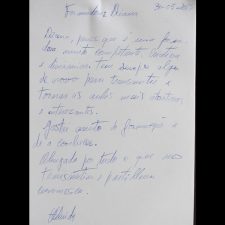 Formadora Diana 30-05-
Diana, penso que é uma forma-
dora muito competente, contagia
e dinamiza. Tem sempre algo
de novo para transmitir e
tornar as aulas mais atractivas
e interessantes.
Gostei muito da formação e
de a conhecer.
Obrigada por tudo o que nos
transmitiu e partilhou
connosco.